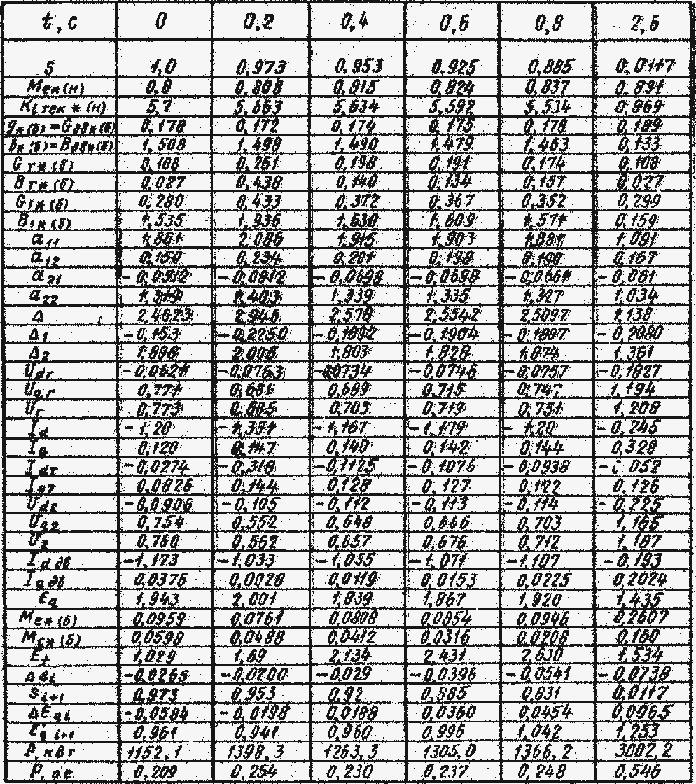 t, c 0 0,2 0,4 0,6 0,8 2,6
S 1,0 0,973 0,953 0,925 0,885 0,0117
Mек(н) 0,8 0,808 0,815 0,824 0,837 0,891
5,7 5,663 5,634 5,592 5,534 0,969
0,178 0,172 0,174 0,175 0,178 0,189
1,508 1,498 1,490 1,479 1,463 0,133
0,108 0,261 0,198 0,191 0,174 0,108
0,027 0,438 0,140 0,134 0,157 0,027
0,280 0,433 0,372 0,367 0,352 0,299
1,535 1,936 1,630 1,609 1,571 0,159
a11 1,661 2,086 1,915 1,903 1,881 1,091
a12 0,150 0,234 0,201 0,198 0,190 0,167
a21 -0,0912 -0,0698 -0,0698 -0,0661 -0,061
a22 1,403 1,339 1,335 1,327 1,034
Δ 2,4623 2,946 2,578 2,5542 2,5097 1,138
Δ1 -0,153 -0,2250 -0,1892 -0,1904 -0,1897 -0,2080
Δ2 1,898 2,006 1,803 1,826 1,874 1,361
Udr -0,0621 -0,0763 -0,0734 -0,0746 -0,0757 -0,1827
Uqr 0,771 0,681 0,699 0,715 0,747 1,194
Ur 0,773 0,685 0,703 0,719 0,751 1,208
Id -1,20 -1,351 -1,167 -1,179 -1,20 -0,245
Iq 0,120 0,147 0,140 0,142 0,144 0,328
IdT -0,0274 -0,318 -0,1125 -0,1076 -0,0938 -0,052
IqT 0,0826 0,144 0,128 0,127 0,122 0,126
Ud2 -0,0906 -0,105 -0,112 -0,113 -0,114 -0,225
Uq2 0,754 0,552 0,648 0,666 0,703 1,165
U2 0,760 0,562 0,657 0,676 0,712 1,187
Id дв -1,173 -1,033 -1,055 -1,071 -1,107 -0,193
Iq дв 0,0376 0,0028 0,0119 0,0153 0,0225 0,2024
Eq 1,943 2,001 1,839 1,867 1,920 1,435
Mек(б) 0,0959 0,0761 0,0808 0,0854 0,0946 0,2607
Mск(б) 0,0598 0,0488 0,0412 0,0316 0,0208 0,160
Et 1,029 1,69 2,134 2,431 2,630 1,534
Δsi -0,0265 -0,0200 -0,029 -0,0396 -0,0541 -0,0738
Si+1 0,973 0,953 0,92 0,885 0,831 0,0117
ΔEqi -0,0584 -0,0198 0,0188 0,0360 0,0454 0,0965
Eq i+1 0,961 0,941 0,960 0,996 1,042 1,253
P, кВт 1152,1 1398,3 1263,3 1305,0 1366,2 3002,2
P, о.е. 0,209 0,254 0,230 0,237 0,248 0,546